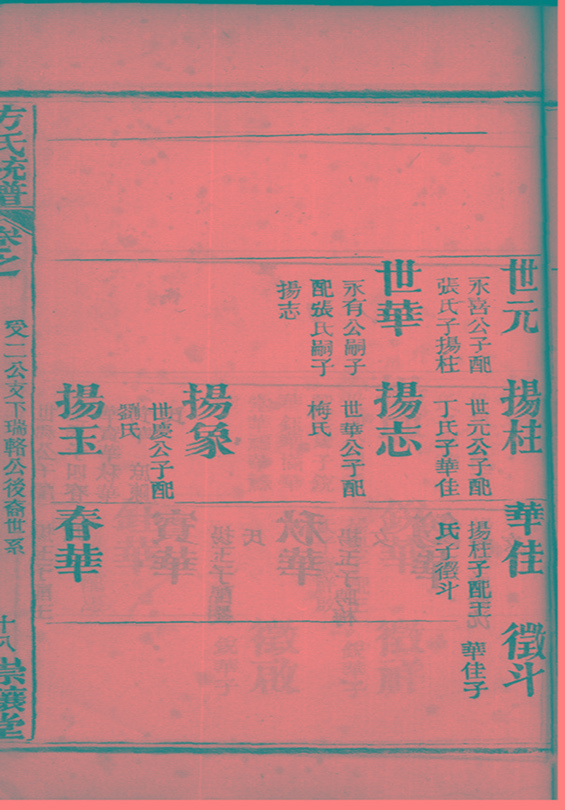 世元
永喜公子配
張氏子揚柱
揚柱
世元公子配
丁氏子華佳
華佳
揚柱子配王
氏子徵斗
徵斗
華佳子
世華
永有公嗣子
配張氏嗣子
揚志
揚志
世華公子配
梅氏
揚象
世慶公子配
劉氏
揚玉
春華
方氏統譜
卷之
受二公支下瑞輅公後裔世系
十八
崇讓堂